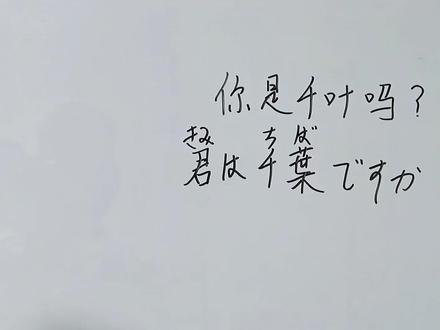 你是千叶吗？
きみ ちば
君は千葉ですか